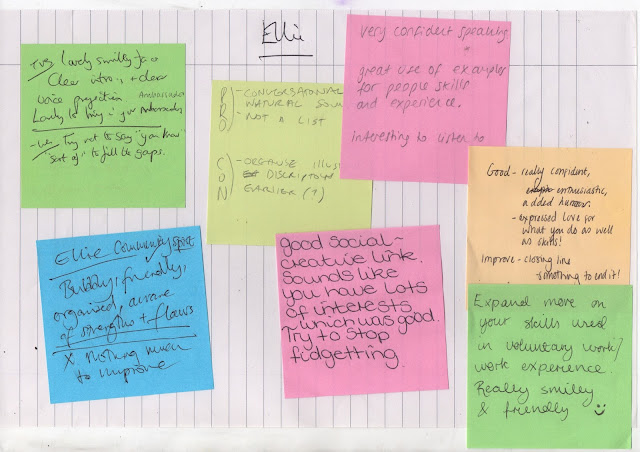 Ellie
+ve, lovely smiley face
Clear intro, + clear
voice projection
Ambassador
Lovely to bring in your Ambassador
-ve Try not to say "you know"
sort of" to fill the gaps.
PRO) - CONVERSATIONAL
NATURAL SOUN
- NOT A LIST
CON) - ORGANISE ILLUS
DISCRIPTION
EARLIER (?)
very confident speaking
great use of examples
for people skills
and experience.
interesting to listen to
Good - really confident,
enthusiastic,
added humour.
- expressed love for
what you do as well
as skills!
Improve - closing line
something to end it!
Ellie Community spirit
Bubbly, friendly,
organised, aware
of strengths + flaws
X Nothing much
to improve
good social -
creative link.
Sounds like
you have lots
of interests
which was good.
Try to stop
fidgetting.
Expand more on
your skills used
in voluntary work/
work experience.
Really smiley
& friendly